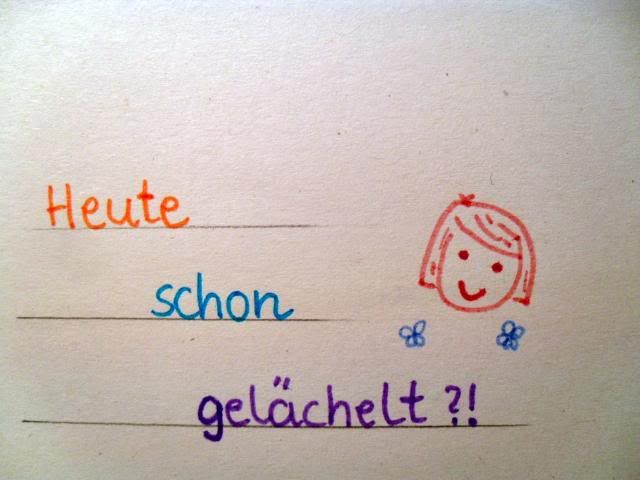 Heute
schon
gelächelt ?!